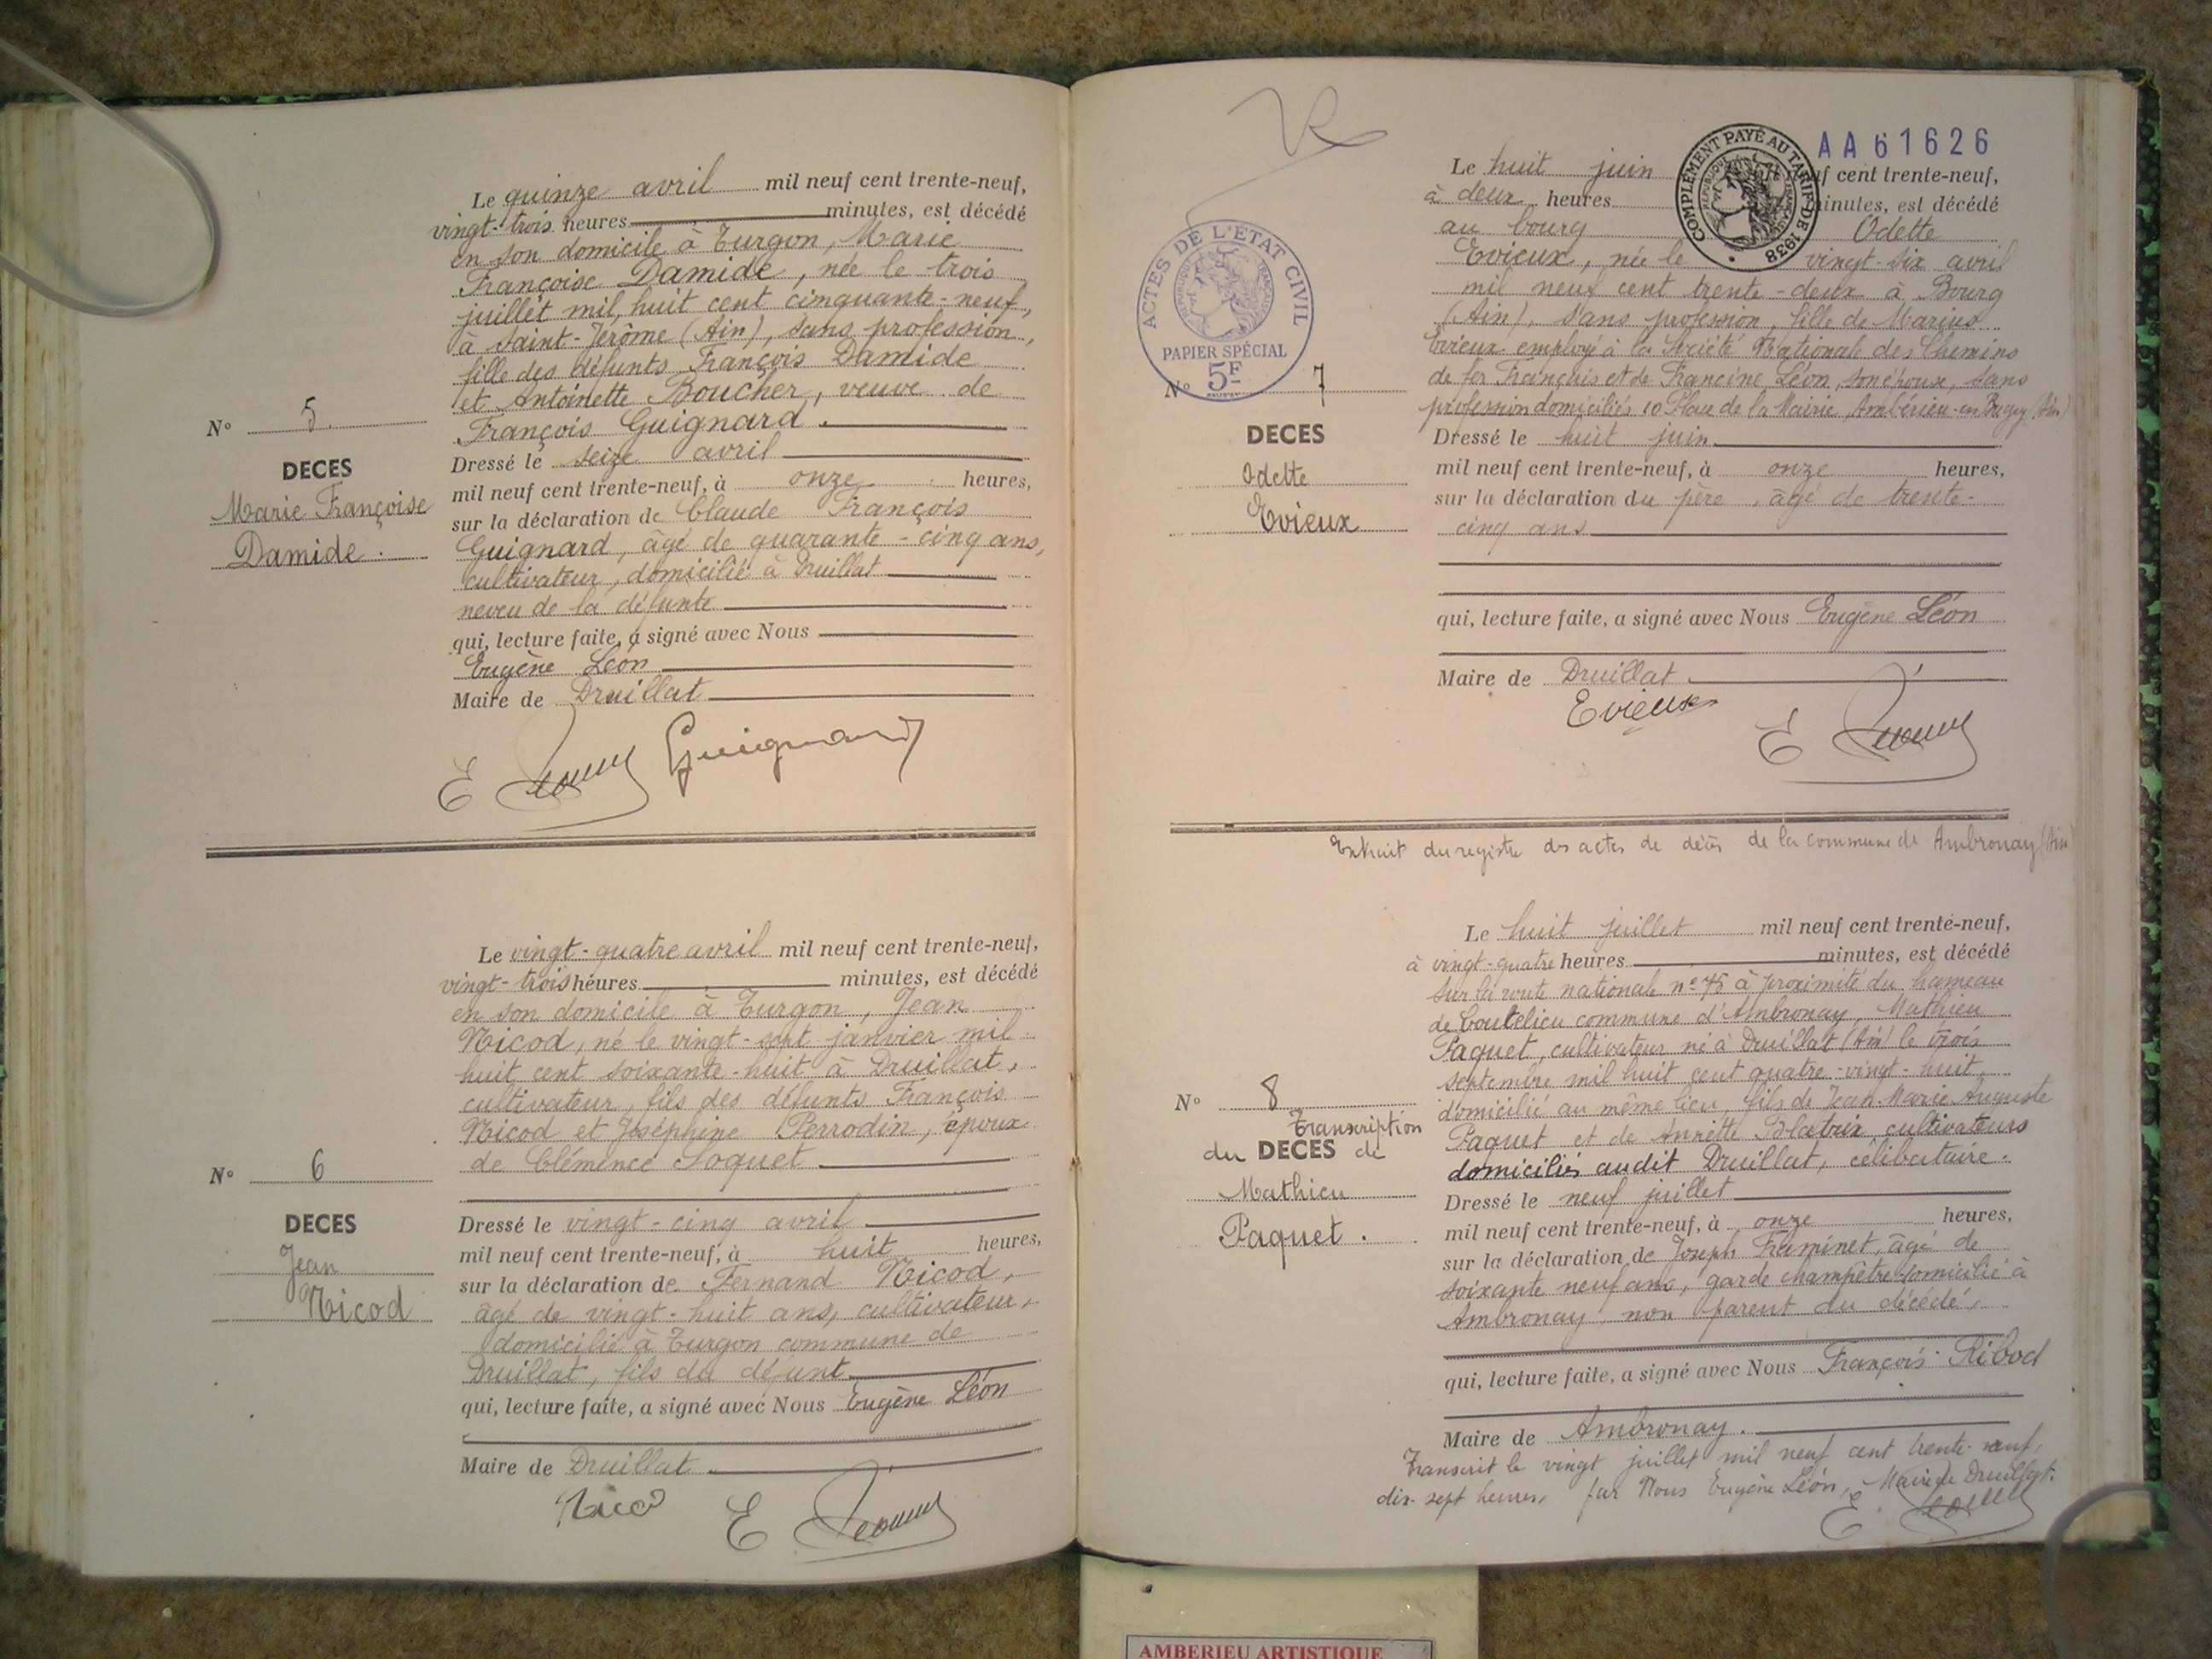 Le quinze avril mil neuf cent trente-neuf,
vingt-trois heures minutes, est décédé
en son domicile à Turgon, Marie
Françoise Damide, née le trois
juillet mil huit cent cinquante-neuf,
à Saint-Jérôme (Ain), sans profession,
fille des défunts François Damide
et Antoinette Boucher, veuve de
François Guignard.
N° 5.
DECES
Marie Françoise
Damide.
Dressé le seize avril
mil neuf cent trente-neuf, à onze heures,
sur la déclaration de Claude François
Guignard, âgé de quarante-cinq ans,
cultivateur, domicilié à Druillat
neveu de la défunte
qui, lecture faite, a signé avec Nous
Eugène Léon
Maire de Druillat
E Léon Guignard
Le vingt-quatre avril mil neuf cent trente-neuf,
vingt-trois heures minutes, est décédé
en son domicile à Turgon, Jean
Nicod, né le vingt-sept janvier mil
huit cent soixante-huit à Druillat,
cultivateur, fils des défunts François
Nicod et Joséphine Perrodin, époux
de Clémence Loquet
N° 6
DECES
Jean
Nicod
Dressé le vingt-cinq avril
mil neuf cent trente-neuf, à huit heures,
sur la déclaration de Fernand Nicod,
âgé de vingt-huit ans, cultivateur,
domicilié à Turgon commune de
Druillat, fils du défunt
qui, lecture faite, a signé avec Nous Eugène Léon
Maire de Druillat.
Nicod E Léon
AA61626
COMPLÉMENT PAYÉ AU TARIF DE 1938
ACTES DE L'ÉTAT CIVIL
PAPIER SPÉCIAL
5F
Le huit juin f cent trente-neuf,
à deux heures minutes, est décédé
au bourg Odette
Evieux, née le vingt-six avril
mil neuf cent trente-deux à Bourg
(Ain), sans profession, fille de Marius
Evieux employé à la Société Nationale des Chemins
de fer Français et de Francine Léon, son épouse, sans
profession domiciliés 10 Place de la Mairie Ambérieu-en-Bugey (Ain)
N° 7
DECES
Odette
Evieux
Dressé le huit juin
mil neuf cent trente-neuf, à onze heures,
sur la déclaration du père, âgé de trente-
cinq ans
qui, lecture faite, a signé avec Nous Eugène Léon
Maire de Druillat
Evieux E Léon
Extrait du registre des actes de décès de la commune de Ambronay (Ain)
Le huit juillet mil neuf cent trente-neuf,
à vingt-quatre heures minutes, est décédé
sur la route nationale n° 75 à proximité du hameau
de Coutelieu commune d'Ambronay, Mathieu
Paquet, cultivateur né à Druillat (Ain) le trois
septembre mil huit cent quatre-vingt-huit,
domicilié au même lieu, fils de Jean Marie Auguste
Paquet et de Annette cultivateurs
domiciliés audit Druillat, célibataire.
N° 8
Transcription
du DECES de
Mathieu
Paquet.
Dressé le neuf juillet
mil neuf cent trente-neuf, à onze heures,
sur la déclaration de Joseph Framinet, âgé de
soixante neuf ans, garde champêtre domicilié à
Ambronay, non parent du décédé,
qui, lecture faite, a signé avec Nous François Ribod
Maire de Ambronay.
Transcrit le vingt juillet mil neuf cent trente-neuf,
dix-sept heures, par Nous Eugène Léon, Maire de Druillat.
E. Léon
AMBERIEU ARTISTIQUE